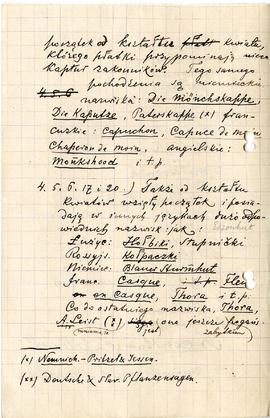 początek od kształtu kwiata,
którego płatki przypominają nieco
kaptur zakonników. Tego samego
pochodzenia są niemieckie
4. 5. 6. nazwiska: Die Mönchskappe,
Die Kaputze, Paterskappe (x) fran-
cuzkie: capuchon, Capuce de moine
Chaperon de moin, angielskie:
Monkshood i t.p.
4. 5. 6. 17 i 20.) Także od kształtu
kwiatów wzięły początek i posia-
dają w innych językach dużo odpo-
wiednich nazwisk jak:
Łużyc: Hołbiki,
Rossyjs. Kołpaczki
Niemiec: Blauer Sturmhut
franc. Casque,
en casque, Thora i t.p.
Co do ostatniego nazwiska, Thora,
A. Leist (xx) one jeszcze
mniema że jest zabytkiem
(x) Nemnich - Pritzel & Jessen.
(xx) Deutsche & slav. Pflanzensagen.